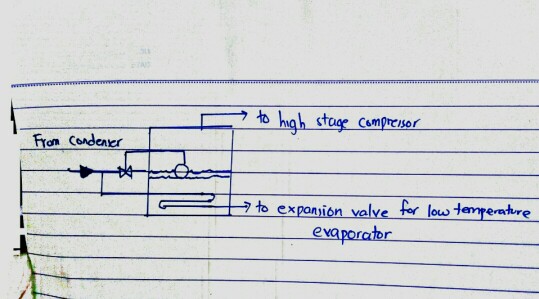 to high stage compressor
From condenser
to expansion valve for low temperature
evaporator